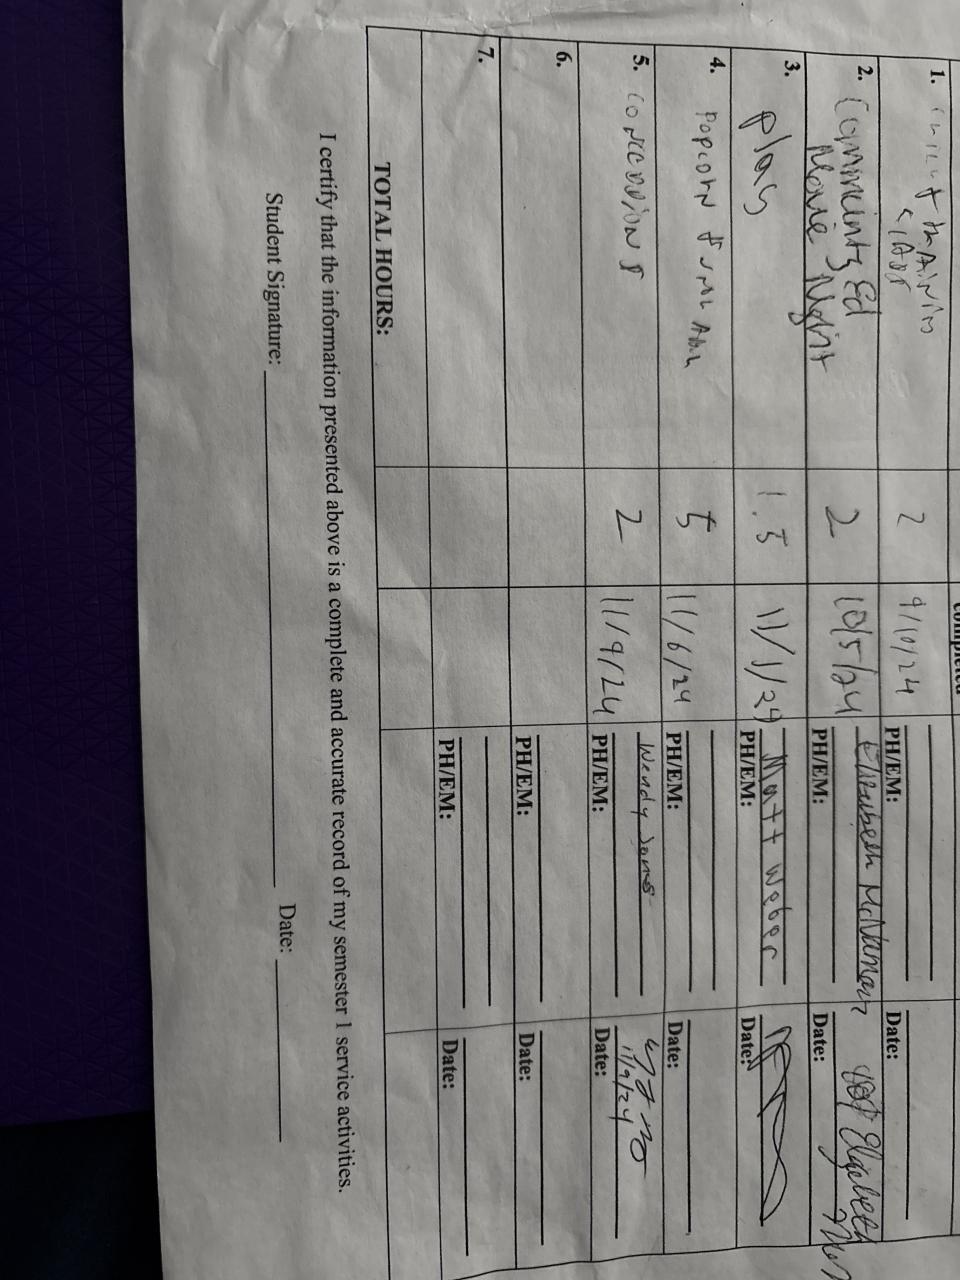 completed
1.
2
9/10/24
PH/EM:
Date:
2. Community Ed
Movie Night
2
10/5/24
Elizabeth McNamara
PH/EM:
Date:
Elizabeth
3. Play
1.5
11/1/24
Matt Weber
PH/EM:
Date:
4. Popcorn
5
11/6/24
PH/EM:
Date:
5. concessions
2
11/9/24
Wendy Jones
PH/EM:
11/9/24
Date:
6.
PH/EM:
Date:
7.
PH/EM:
Date:
TOTAL HOURS:
I certify that the information presented above is a complete and accurate record of my semester 1 service activities.
Student Signature: Date: